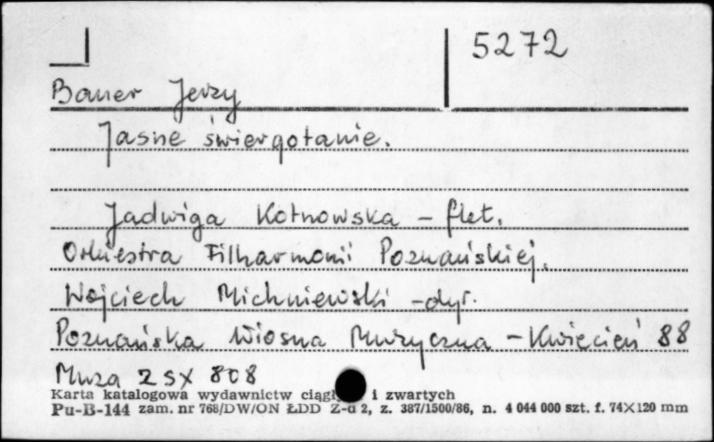 5272
Bauer Jerzy
Jasne świergotanie.
Jadwiga Kotnowska - flet.
Orkiestra Filharmonii Poznańskiej.
Wojciech Michniewski - dyr.
Poznańska Wiosna Muzyczna - Kwiecień 88
Muza 2 SX 808
Karta katalogowa wydawnictw i zwartych
Pu-B-144 zam. nr 768/DW/ON ŁDD Z-a 2, z. 387/1500/86, n. 4 044 000 szt. f. 74X120 mm